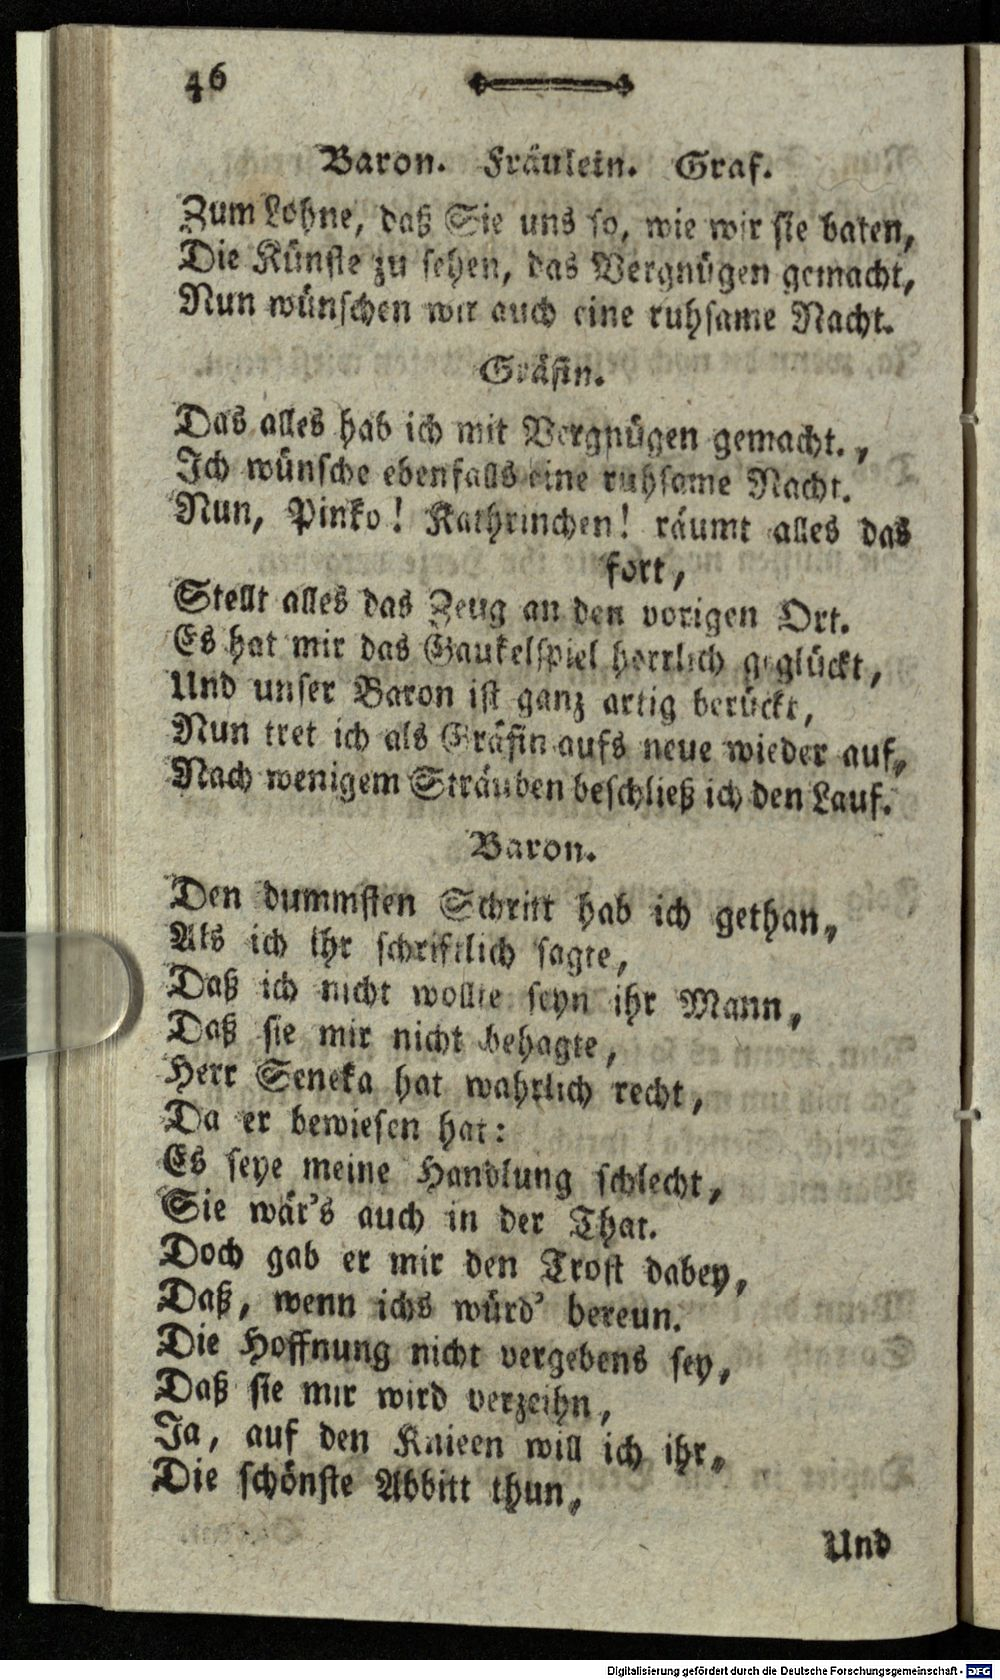 46
Baron. Fräulein. Graf.
Zum Lohne, daß Sie uns so, wie wir sie baten,
Die Künste zu sehen, das Vergnügen gemacht,
Nun wünschen wir auch eine ruhsame Nacht.
Gräfin.
Das alles hab ich mit Vergnügen gemacht.,
Ich wünsche ebenfalls eine ruhsame Nacht.
Nun, Pinko! Kathrinchen! räumt alles das
fort,
Stellt alles das Zeug an den vorigen Ort.
Es hat mir das Gaukelspiel herrlich geglückt,
Und unser Baron ist ganz artig berückt,
Nun tret ich als Gräfin aufs neue wieder auf,
Nach wenigem Sträuben beschließ ich den Lauf.
Baron.
Den dummsten Schritt hab ich gethan,
Als ich ihr schriftlich sagte,
Daß ich nicht wollte seyn ihr Mann,
Daß sie mir nicht behagte,
Herr Seneka hat wahrlich recht,
Da er bewiesen hat:
Es seye meine Handlung schlecht,
Sie wär's auch in der That.
Doch gab er mir den Trost dabey,
Daß, wenn ichs würd' bereun.
Die Hoffnung nicht vergebens sey,
Daß sie mir wird verzeihn,
Ja, auf den Knieen will ich ihr,
Die schönste Abbitt thun,
Und
Digitalisierung gefördert durch die Deutsche Forschungsgemeinschaft - DFG